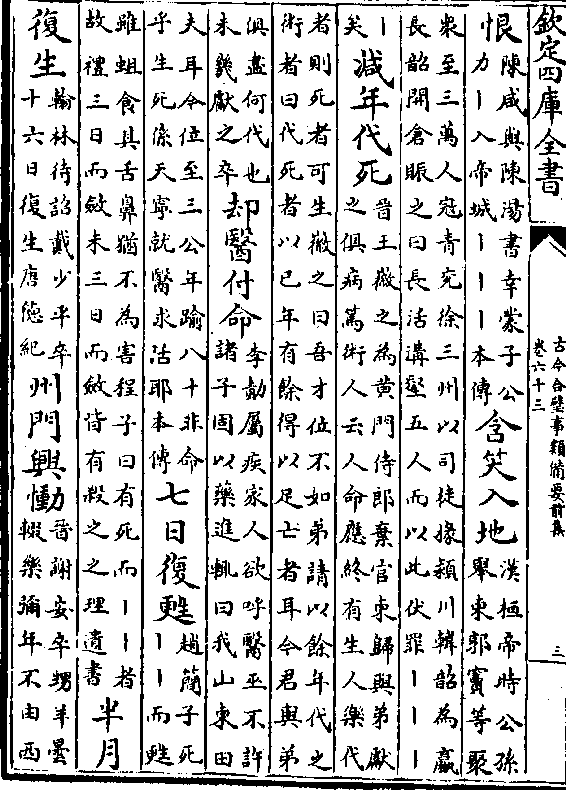 欽定四庫全書
古今合璧事類備要前集
卷六十三
三
恨
陳咸與陳湯書幸䝉子公
力丨入帝城丨丨丨本傳
含笑入地
漢桓帝時公孫
舉東郭竇等聚
衆至三萬人冦青兖徐三州以司徒掾頴川韓韶為嬴
長韶開倉賑之曰長活溝壑五人而以此伏罪丨丨丨
丨
矣
減年代死
昔王徽之為黄門侍郎棄官東歸與弟獻
之俱病篤術人云人命應終有生人樂代
者則死者可生徽之曰吾才位不如弟請以餘年代之
術者曰代死者以已年有餘得以足亡者耳今君與弟
俱盡何代也
未幾獻之卒
却醫付命
李勣屬疾家人欲呼醫巫不許
諸子固以藥進輒曰我山東田
夫耳今位至三公年踰八十非命
乎生死係天寧就醫求活耶本傳
七日復甦
趙簡子死
丨丨而甦
雖蛆食其舌鼻猶不為害程子曰有死而丨丨者
故禮三日而斂未三日而斂皆有殺之之理遺書
半月
復生
翰林待詔戴少平卒
十六日復生唐德紀
州門興慟
晉謝安卒甥羊曇
輟樂彌年不由西